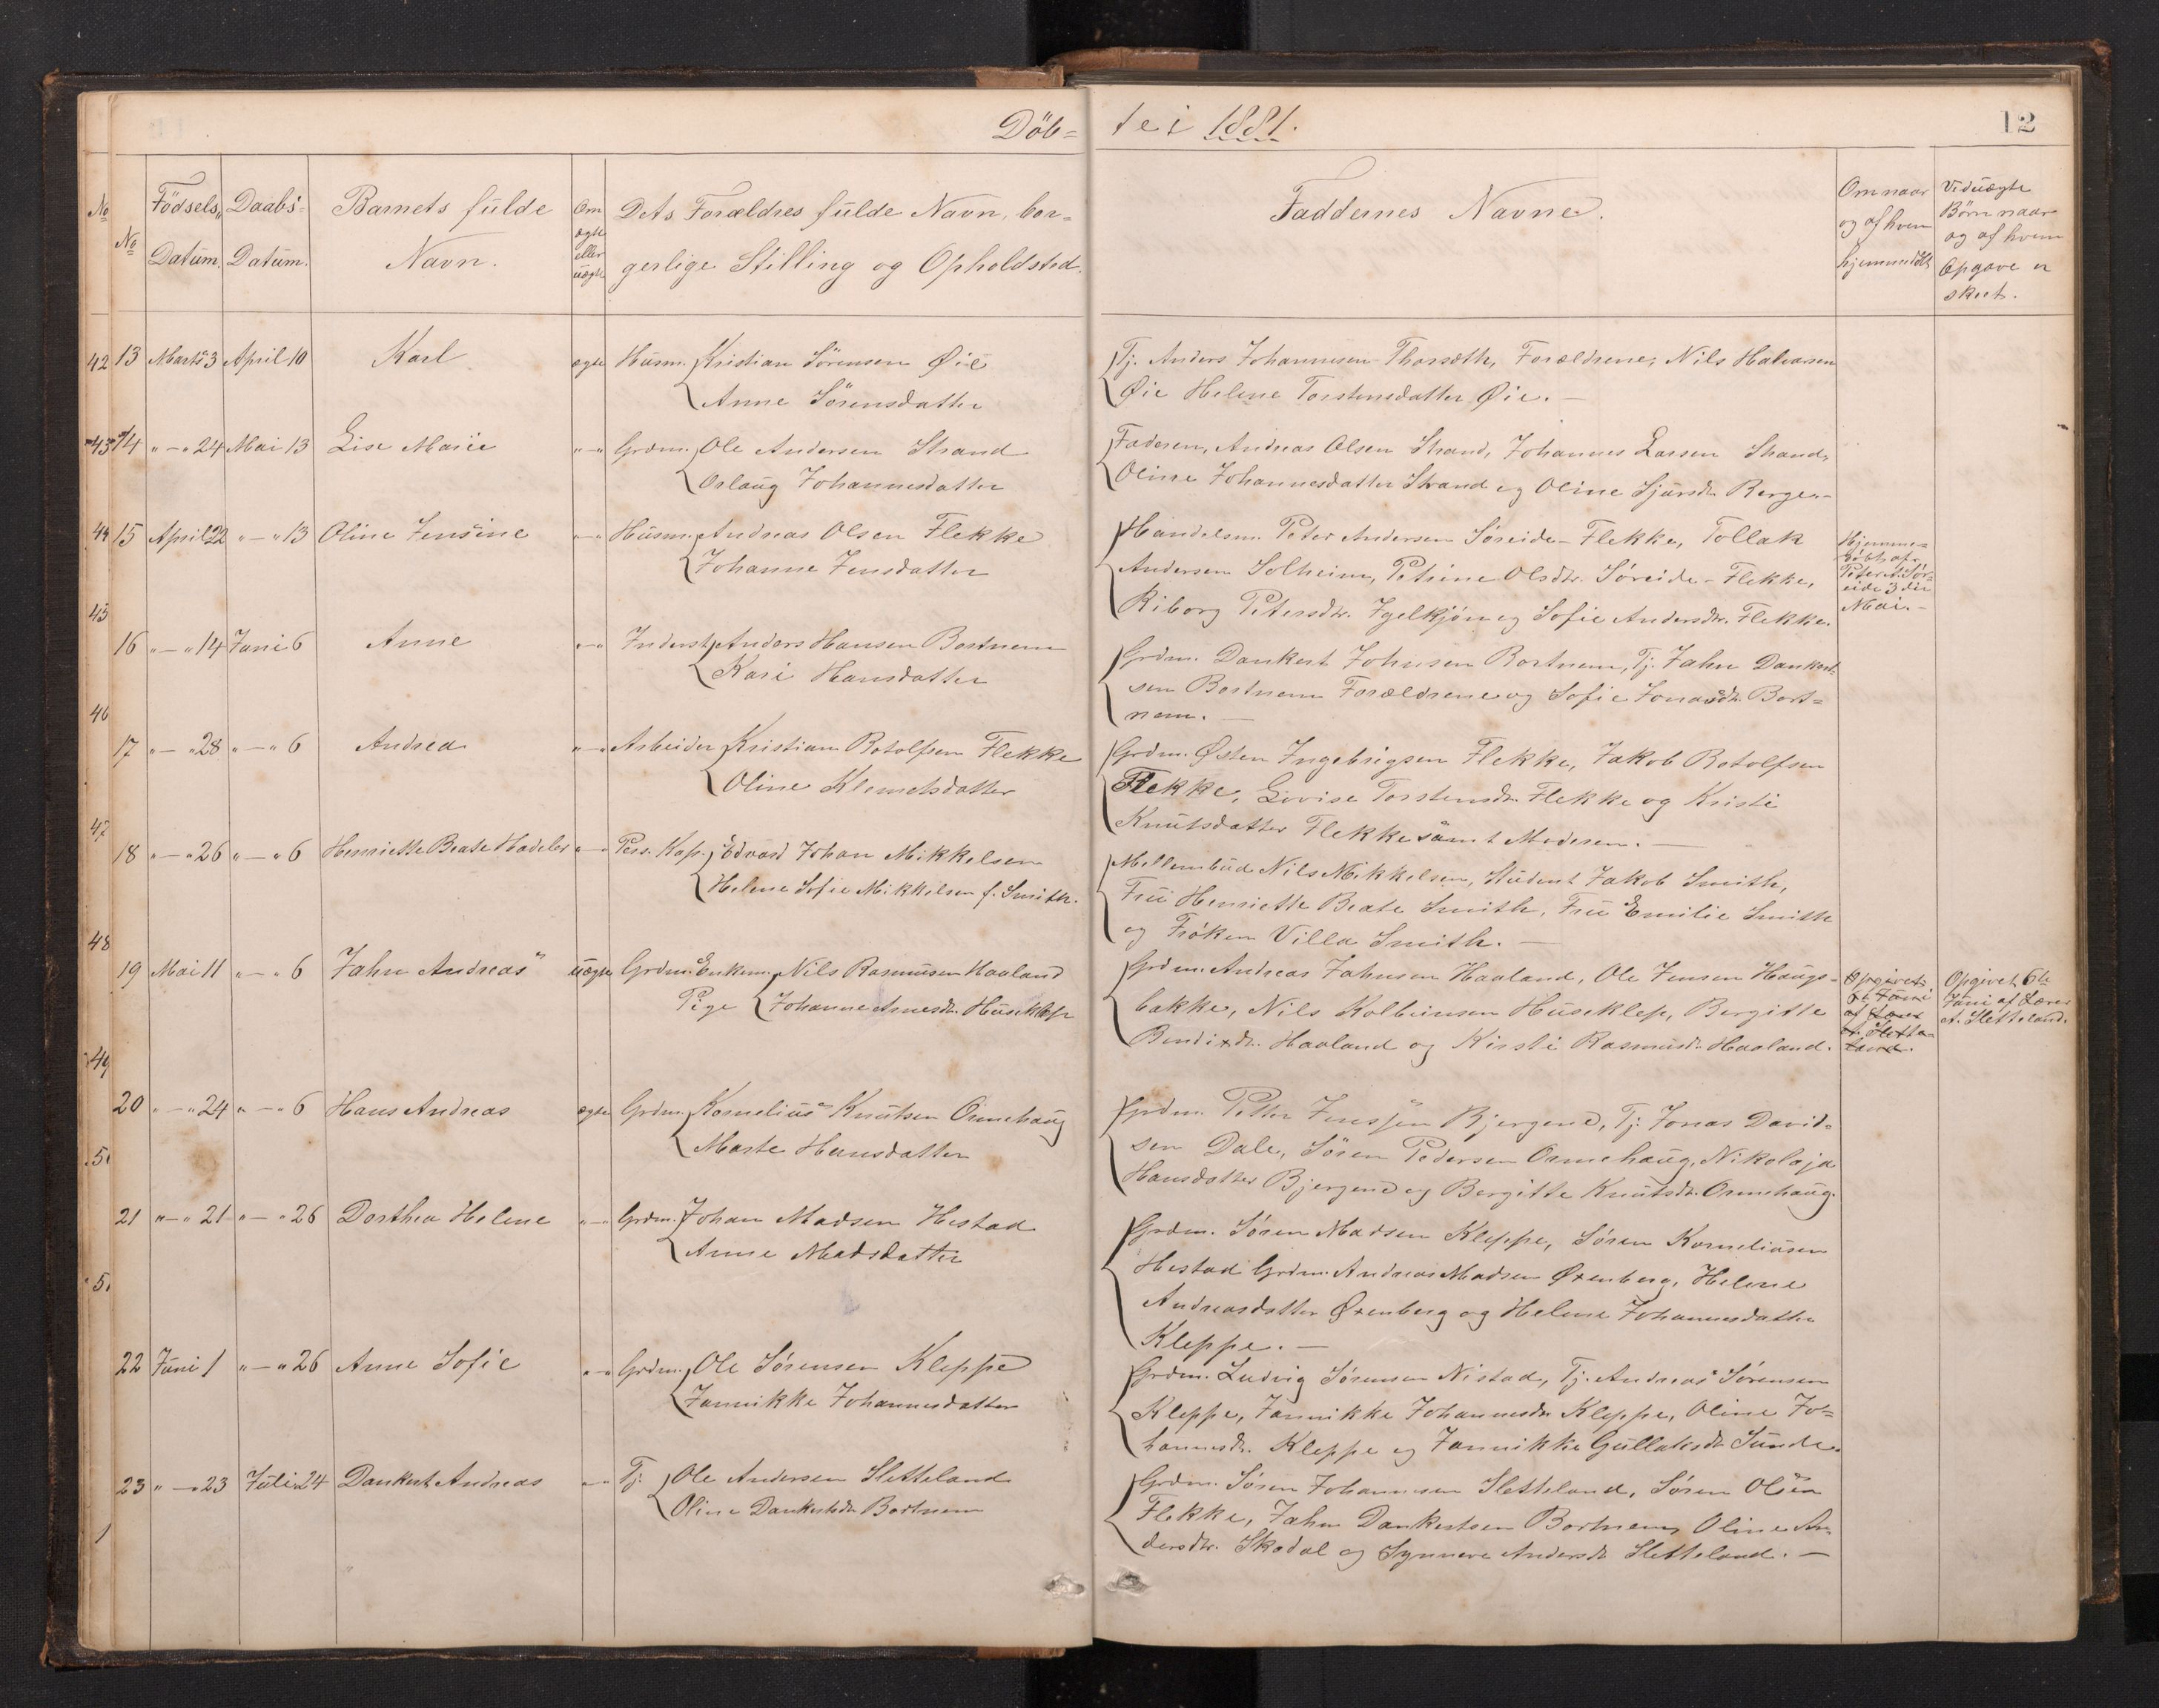 Döb=
te i 1881.
12
No
No
Födsels-
Datum.
Daabs-
Datum.
Barnets fulde
Navn.
Om
ægte
eller
uægte
Dets Forældres fulde Navn, bor-
gerlige Stilling og Opholdsted.
Faddernes Navne.
Om naar
og af hvem
hjemmedöbt
Ved uægte
Börn naar
og af hvem
Opgave er
skeet.
42 13 Marts 3 April 10 Karl ægte Husm. Kristian Sörensen Øie
Anne Sörensdatter
Tj. Anders Johannesen Thorsæth, Forældrene, Nils Halvorsen
Øie Helene Torstensdatter Øie. —
43 14 " — " 24 Mai 13 Lise Marie " — " Grdm. Ole Andersen Strand
Orlaug Johannesdatter
Faderen, Andreas Olsen Strand, Johannes Larsen Strand,
Oline Johannesdatter Strand og Oline Sjursdr. Berge. —
44 15 April 22 " — " 13 Oline Jensine " — " Husm. Andreas Olsen Flekke
Johanne Jensdatter
Handelsm. Peter Andersen Søreide - Flekke, Tollak
Andersen Solheim, Petrine Olsdtr. Søreide - Flekke,
Riborg Petersdtr. Igelkjøn og Sofie Andersdtr. Flekke.
Hjemme-
döbt af
Peter A. Sör-
eide 3die
Mai. —
45
16 " — " 14 Juni 6 Anne " — " Inderst Anders Hansen Bortnem
Kari Hansdatter
Grdm. Dankert Johnsen Bortnem, Tj. Jahn Dankert-
sen Bortnem Forældrene og Sofie Jonasdr. Bort=
nem. —
46
17 " — " 28 " — " 6 Andrea " — " Arbeider Kristian Rotolfsen Flekke
Oline Klemetsdatter
Grdm. Østen Ingebrigsen Flekke, Jakob Rotolfsen
Flekke, Lovise Torstensdr. Flekke og Kristi
Knutsdatter Flekke samt Moderen. —
47
18 " — " 26 " — " 6 Henriette Beate Hadeler " — " Pers. Kap. Edvard Johan Mikkelsen
Helene Sofie Mikkelsen f. Smith.
Mellembud Nils Mikkelsen, Student Jakob Smith,
Fru Henriette Beate Smith, Fru Emilie Smith
og Frøken Villa Smith. —
48
19 Mai 11 " — " 6 Jahn Andreas uægte Grdm. Enkem. Nils Rasmusen Haaland
Pige Johanne Arnesdr. Huseklep
Grdm. Andreas Jahnsen Haaland, Ole Jensen Haugs-
bakke, Nils Kolbeinsen Huseklep, Bergitte
Bendixdr. Haaland og Kirsti Rasmusdr. Haaland.
Opgivet
6te Juni
af Lærer
A. Slette-
land.
Opgivet 6te
Juni af Lærer
A. Sletteland.
49
20 " — " 24 " — " 6 Hans Andreas ægte Grdm. Kornelius Knutsen Ormehaug
Marte Hansdatter
Grdm. Petter Jenssen Bjergene, Tj. Jonas David-
sen Dale, Sören Pedersen Ormehaug, Nikolaja
Hansdatter Bjergene og Bergitte Knutsdr. Ormehaug.
5
21 " — " 21 " — " 26 Dorthea Helene " — " Grdm. Johan Madsen Hestad
Anne Madsdatter
Grdm. Søren Madsen Kleppe, Søren Korneliusen
Hestad Grdm. Andreas Madsen Øxenberg, Helene
Andreasdatter Øxenberg og Helene Johannesdatter
Kleppe. —
5
22 Juni 1 " — " 26 Anne Sofie " — " Grdm. Ole Sørensen Kleppe
Jannikke Johannesdatter
Grdm. Ludvig Sørensen Nistad, Tj. Andreas Sørensen
Kleppe, Jannikke Johannesdr. Kleppe, Oline Jo=
hannesdr. Kleppe og Jannikke Gullaksdr. Sunde.
23 " — " 23 Juli 24 Dankert Andreas " — " Tj. Ole Andersen Sletteland
Oline Dankertsdr. Bortnem
Grdm. Søren Johannesen Sletteland, Søren Olsen
Flekke, Jahn Dankertsen Bortnem, Oline An-
dersdtr. Skodal og Synneve Andersdr. Sletteland. —
1